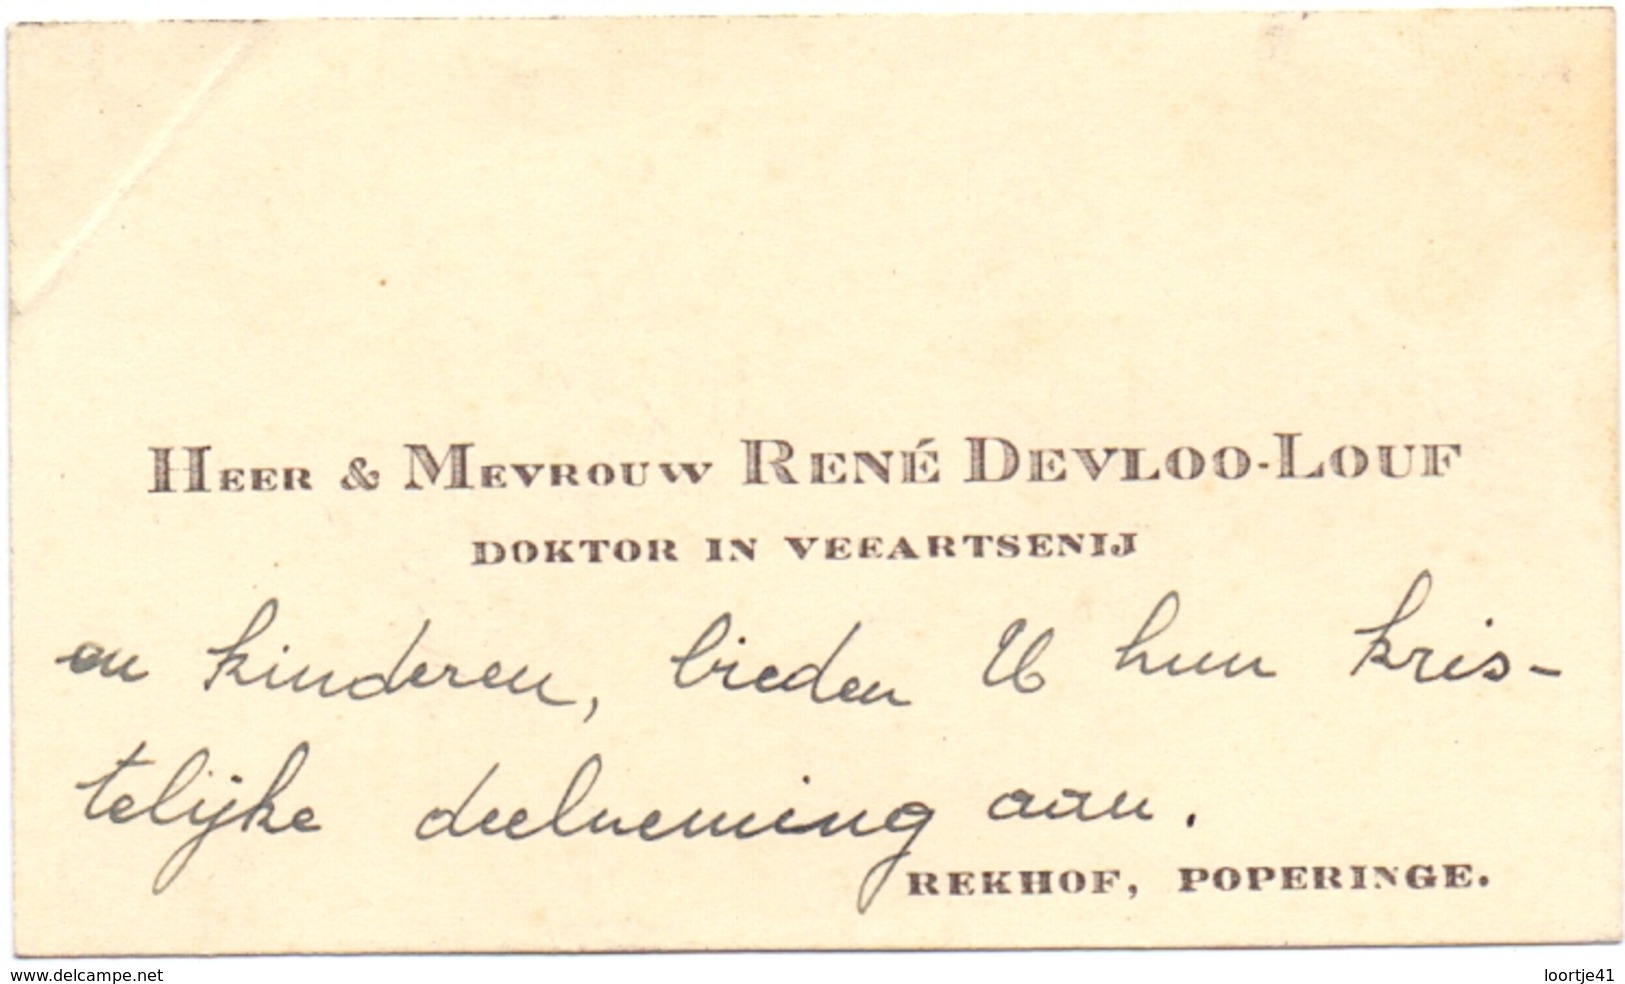 HEER & MEVROUW RENÉ DEVLOO-LOUF
DOKTOR IN VEEARTSENIJ
en kinderen, bieden U hun kris-
telijke deelneming aan.
REKHOF, POPERINGE.
www.delcampe.net loortje41